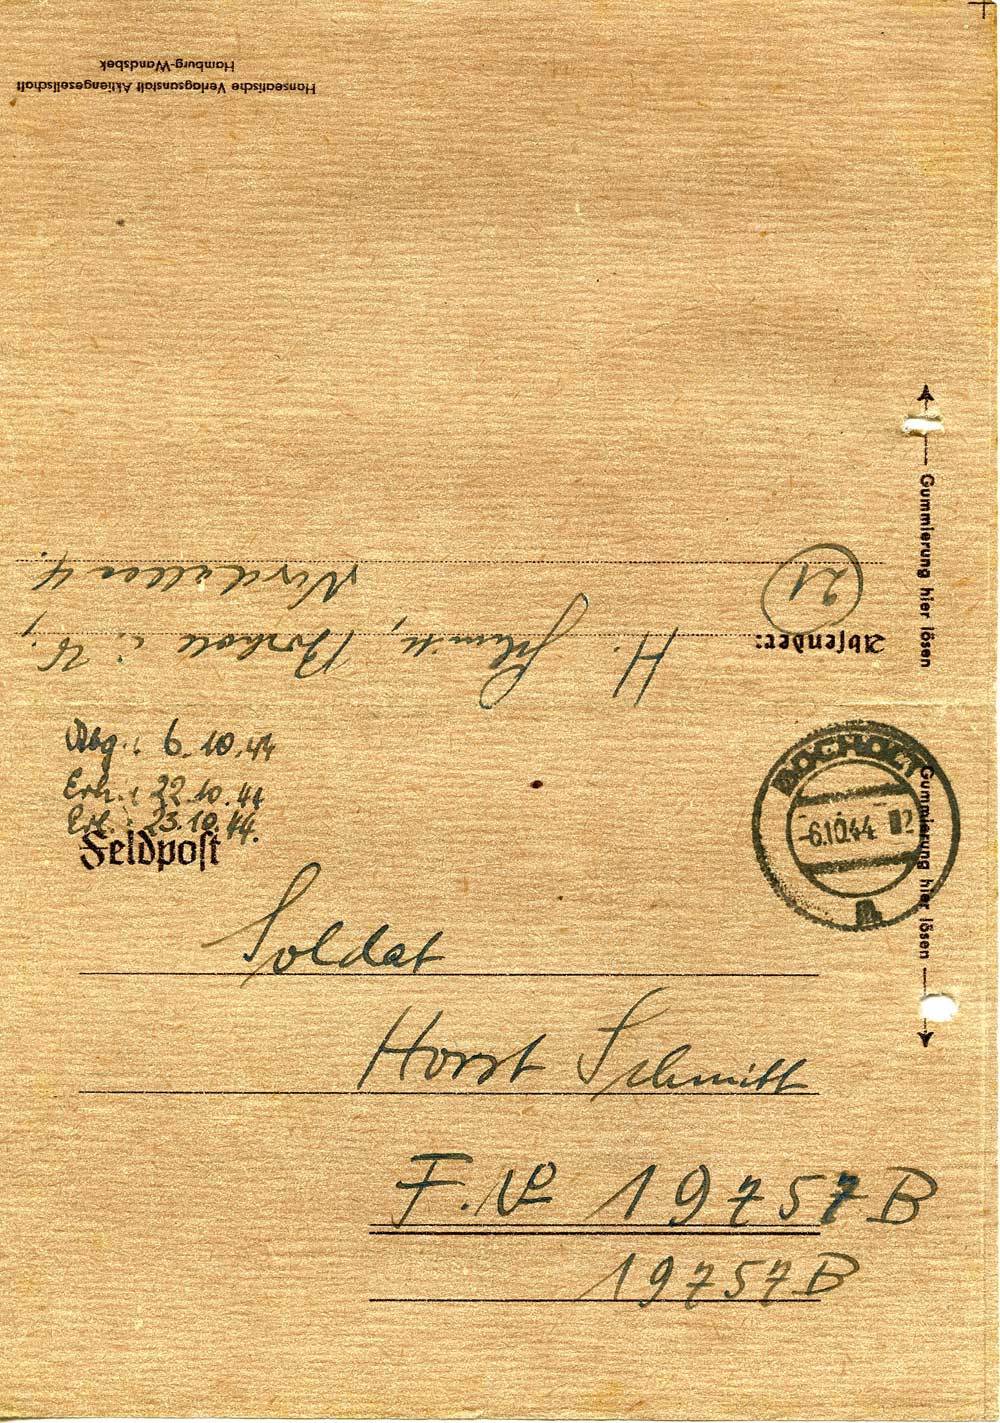 Hanseatische Verlagsanstalt Aktiengesellschaft
Hamburg-Wandsbek
Gummierung hier lösen
Absender:
H. Schmitt, Bocholt i. W.,
21
4.
Abg.: 6.10.44
Erh.: 22.10.44
Erl.: 23.10.44.
Feldpost
BOCHOLT
-6.10.44
Gummierung hier lösen
Soldat
Horst Schmitt
F. No 19757B
19757B